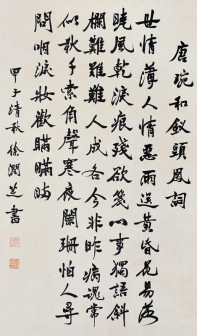 唐琬和釵頭鳳詞
世情薄人情惡雨送黃昏花易落
曉風乾淚痕殘欲箋心事獨語斜
欄難難難人成各今非昨病魂常
似秋千索角聲寒夜闌珊怕人尋
問咽淚妝歡瞞瞞瞞
甲子清秋徐潤芝書